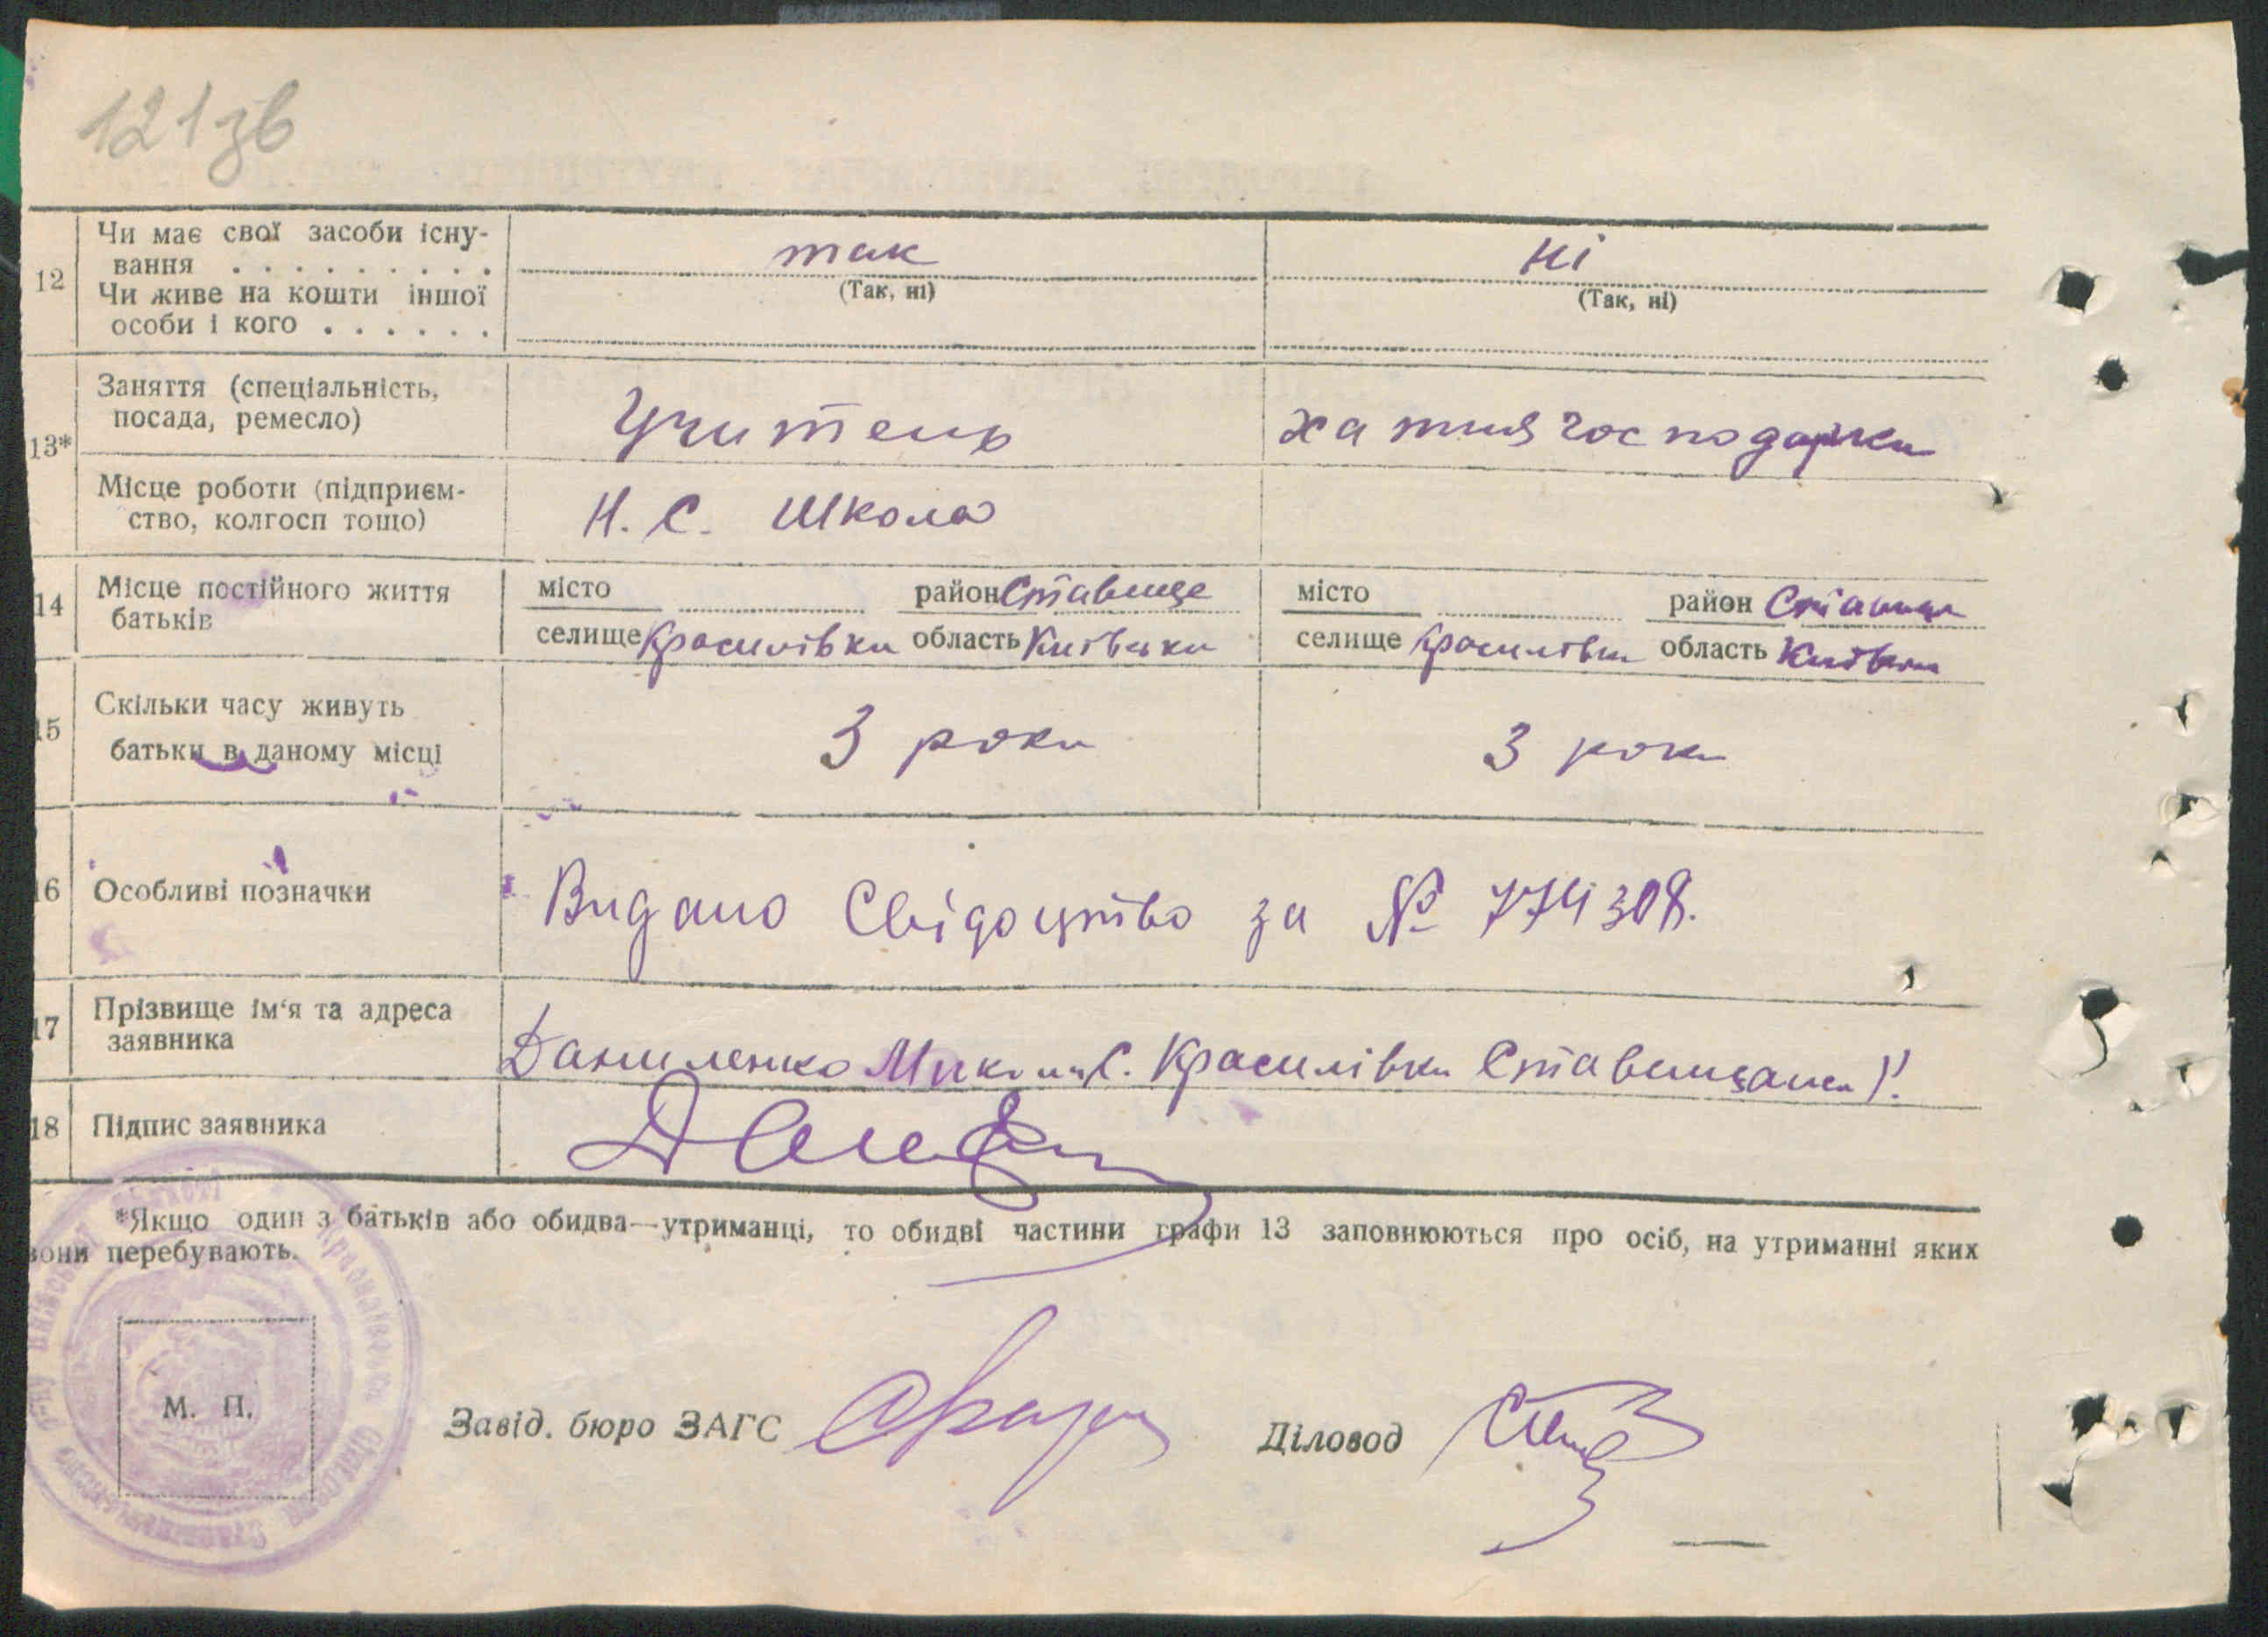 121зв
12 Чи має свої засоби існу-
вання . . . . . . . . . так ні
Чи живе на кошти іншої (Так, ні) (Так, ні)
особи і кого . . . . . .
Заняття (спеціальність,
посада, ремесло) Учитель хатня господарка
13*
Місце роботи (підприєм-
ство, колгосп тощо) Н. С. Школа
14 Місце постійного життя місто район Ставище місто район Ставище
батьків селище Красилівка область Київська селище Красилівка область Київська
15 Скільки часу живуть
батьки в даному місці 3 роки 3 роки
16 Особливі позначки Видано Свідоцтво за № 774308.
17 Прізвище ім‘я та адреса
заявника Даниленко Микола С. Красилівка Ставищанськ
18 Підпис заявника
*Якщо один з батьків або обидва—утриманці, то обидві частини графи 13 заповнюються про осіб, на утриманні яких
вони перебувають.
М. П.
Завід. бюро ЗАГС Діловод